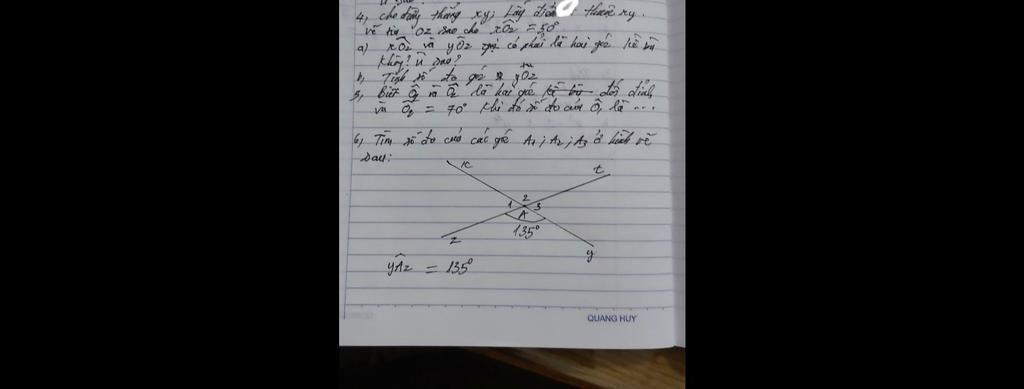 4, cho đường thẳng xy; Lấy điểm thuộc xy.
vẽ tia Oz sao cho xOz = 50°
a) xOz và yOz có phải là hai góc kề bù
không? Vì sao?
b, Tính số đo góc yOz
5, Biết O1 và O2 là hai góc kề bù đối đỉnh
và O2 = 70° khi đó số đo của O1 là ...
6, Tìm số đo của các góc A1; A2; A3 ở hình vẽ
sau:
x
t
1 2 3
A
135°
z
y
yAz = 135°
QUANG HUY